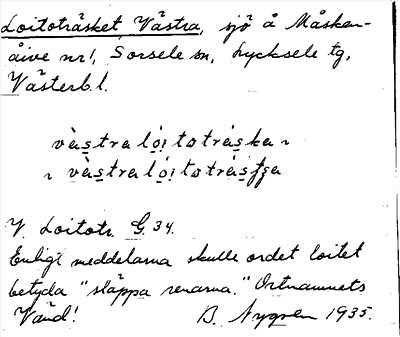 Loitoträsket, Västra, sjö å Måsken-
åive nr 1, Sorsele sn, Lycksele tg,
Västerb. l.
vàstra lói̯totráska ~
~ vàstra lói̯totrás
V. Loitotr. G. 34.
Enligt meddelarna skulle ordet loitet
betyda "släppa renarna." Ortnamnets
Vänd! B. Nygren 1935.